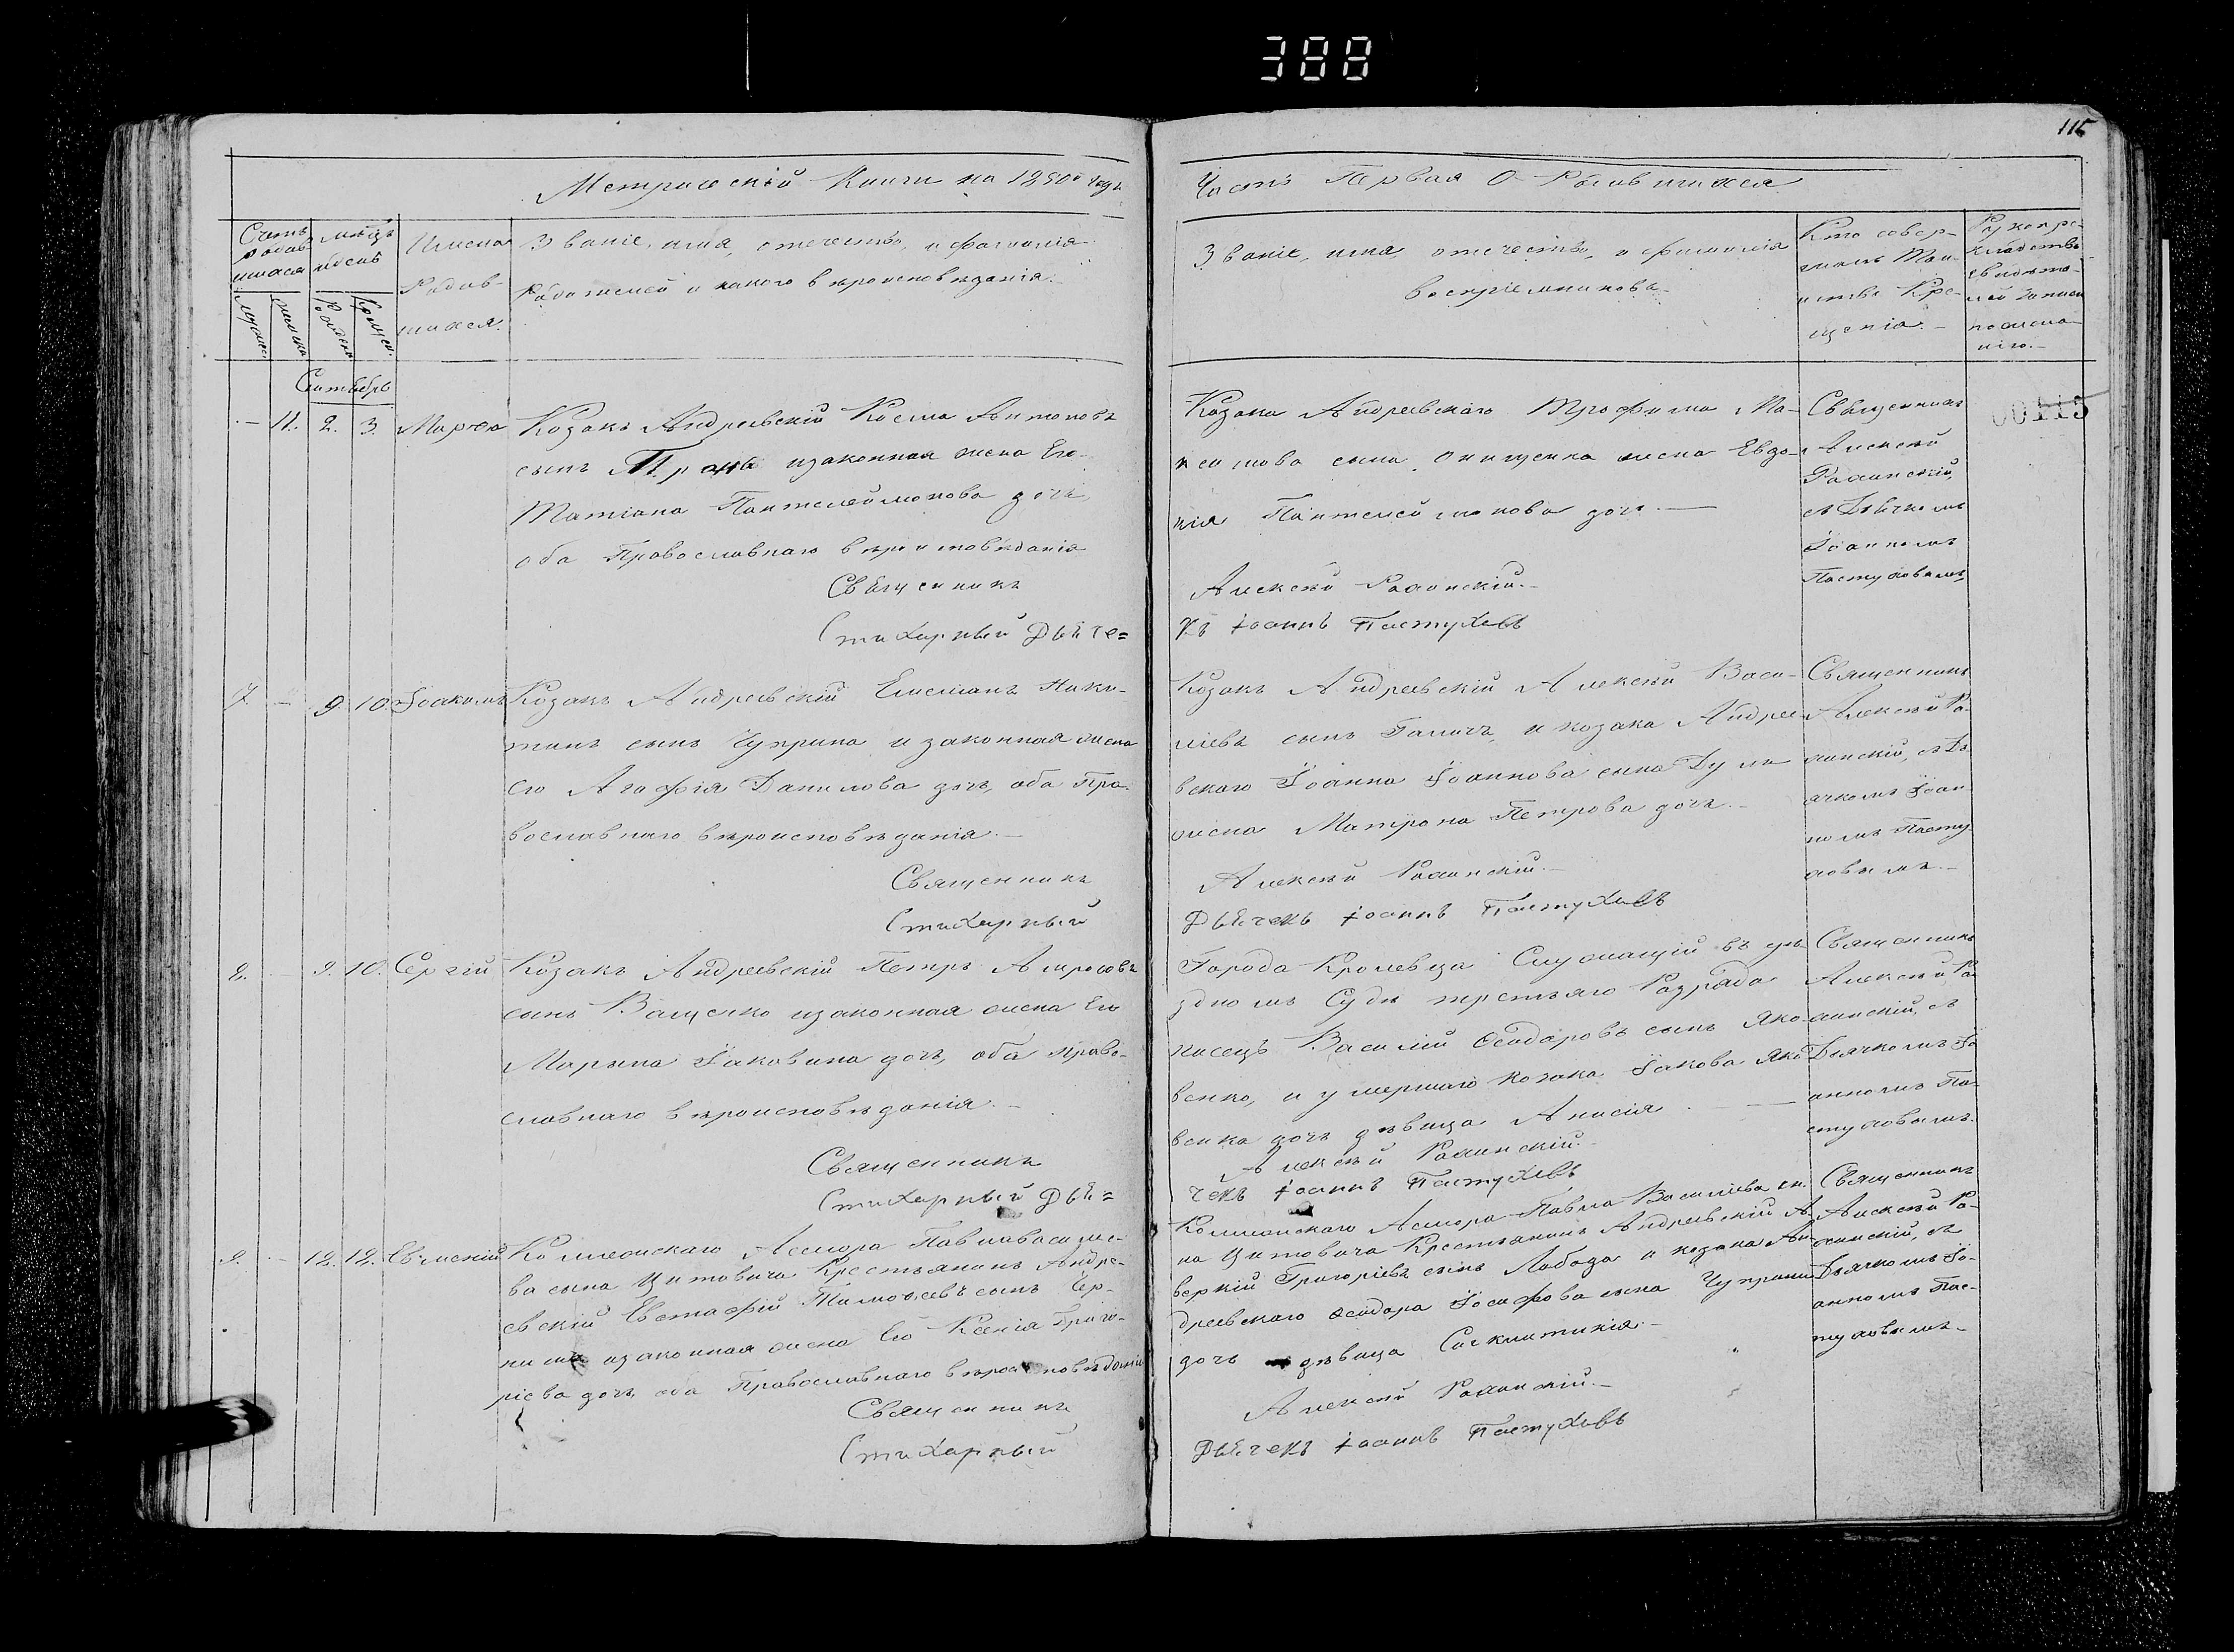 388
115
Метрической Книги на 1850й годъ
Часть Первая О Родившихся
Счетъ родив-
шихся
мѣсяцъ
и день
Имена
Родив-
шихся.
Званіе, имя, отечество, и фамилія
Родителей и какого вѣроисповѣданія.
Мужеск.
женска
Рожден.
Крещен.
Званіе, имя, отечество, и фамилія
воспріемниковъ
Кто совер-
шалъ Таи-
нство Кре-
щенія.
Рукопри-
кладство
свидѣте-
лей записи
по жела-
нію.
Сентябрь
11. 2. 3. Марѳа
Козакъ Андреевскій Косма Антоновъ
сынъ изаконная жена Его
Татіана Пантелеймонова дочь,
оба Православнаго вѣроисповѣданія
Священникъ
Стихарный Дьяче=
Козака Андреевскаго Трофима Ма-
ксимова сына Онищенка жена Евдо-
кія Пантелеймонова дочь.
Алексѣй
къ Іоаннъ Пастуховъ
Священникъ
Алексѣй
съ Дьячкомъ
Іоанномъ
Пастуховымъ
00115
7. 9. 10. Іоакимъ
Козакъ Андреевскій Емеліанъ Ники-
тинъ сынъ Чуприна и законная жена
его Агафія Данилова дочь, оба Пра-
вославнаго вѣроисповѣданія.
Священникъ
Стихарный
Козакъ Андреевскій Алексѣй Васи-
ліевъ сынъ Галичъ, и козака Андрее-
вскаго Іоанна Іоаннова сына
жена Матрона Петрова дочь.
Алексѣй
Дьячекъ Іоаннъ Пастуховъ
Священникъ
Алексѣй
съ Дь-
ячкомъ Іоан-
номъ Пасту-
ховымъ.
8. 9. 10. Сергій
Козакъ Андреевскій Петръ Амросовъ
сынъ Ващенко изаконная жена Его
Марына Іаковина дочь, оба право-
славнаго вѣроисповѣданія.
Священникъ
Стихарный Дья=
Города Кролевца Служащій въ уѣ-
здномъ Судѣ третьяго Разряда
писецъ Василій Ѳеодоровъ сынъ Яко-
венко, и умершаго козака Іакова Яко-
венка дочь дѣвица Анисія
Алексѣй
чекъ Іоаннъ Пастуховъ
Священникъ
Алексѣй
съ
Дьячкомъ Іо-
анномъ Па-
стуховымъ.
9. 12. 12. Евменій
Коллежскаго Асесора Павла Василіе-
ва сына Цитовича Крестьянинъ Андре-
евскій Евстафій Тимоѳеевъ сынъ
изаконная жена Его Ксенія Григо-
ріева дочь оба Православнаго вѣроисповѣданія
Священникъ
Стихарный
Коллежскаго Асесора Павла Василіева сы-
на Цитовича Крестьянинъ Андреевскій А-
веркій Григоріевъ сынъ Лобода и козака Ан-
дреевскаго Ѳеодора Іосифова сына Чуприны
дочь дѣвица
Алексѣй
Дьячекъ Іоаннъ Пастуховъ
Священникъ
Алексѣй
съ
Дьячкомъ Іо-
анномъ Пас-
туховымъ.